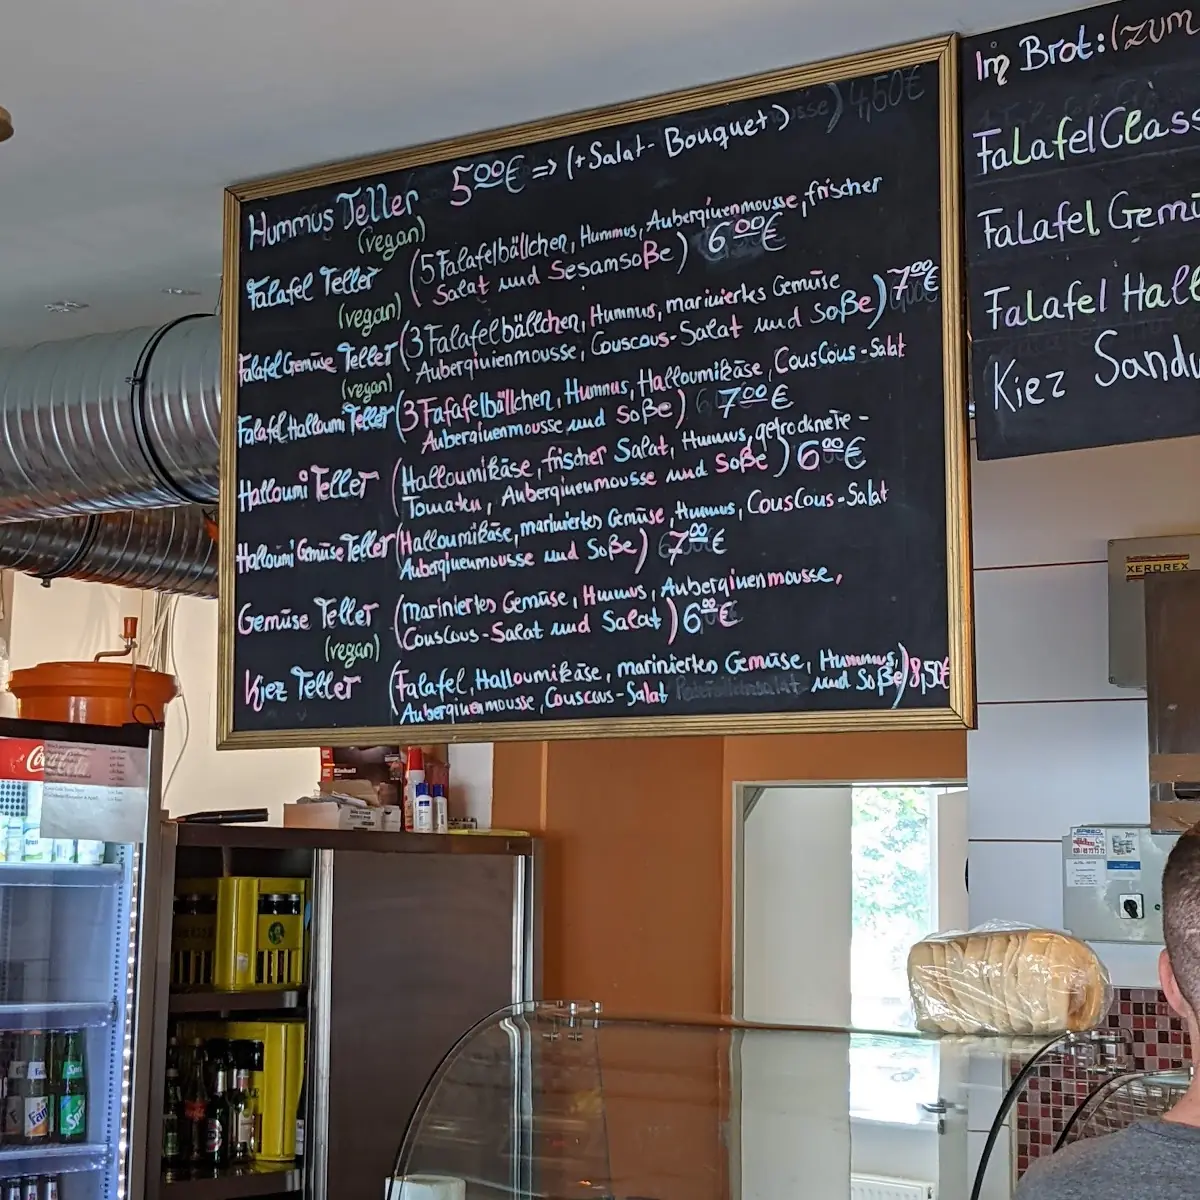 Hummus Teller 5,00€ => (+Salat-Bouquet) 4,50€
(vegan)
Falafel Teller (5 Falafelbällchen, Hummus, Auberginenmousse, frischer
Salat und Sesamsoße) 6,00€
(vegan)
Falafel Gemüse Teller (3 Falafelbällchen, Hummus, mariniertes Gemüse
Auberginienmousse, Couscous-Salat und Soße) 7,00€
(vegan)
Falafel Halloumi Teller (3 Fafafelbällchen, Hummus, Halloumikäse, CousCous-Salat
Auberginenmousse und Soße) 7,00€
Halloumi Teller (Halloumikäse, frischer Salat, Hummus, getrocknete-
Tomaten, Auberginenmousse und Soße) 6,00€
Halloumi Gemüse Teller (Halloumikäse, mariniertes Gemüse, Hummus, CousCous-Salat
Auberginenmousse und Soße) 7,00€
Gemüse Teller (mariniertes Gemüse, Hummus, Auberginenmousse,
CousCous-Salat und Salat) 6,00€
(vegan)
Kiez Teller (Falafel, Halloumikäse, marinierten Gemüse, Hummus,
Auberginenmousse, Couscous-Salat und Soße) 8,50€
Im Brot: (zum
Falafel Class
Falafel Gemü
Falafel Hall
Kiez Sandw
XEROREX
Coca-Cola
Einhell
SPEED
Fanta
Sprite